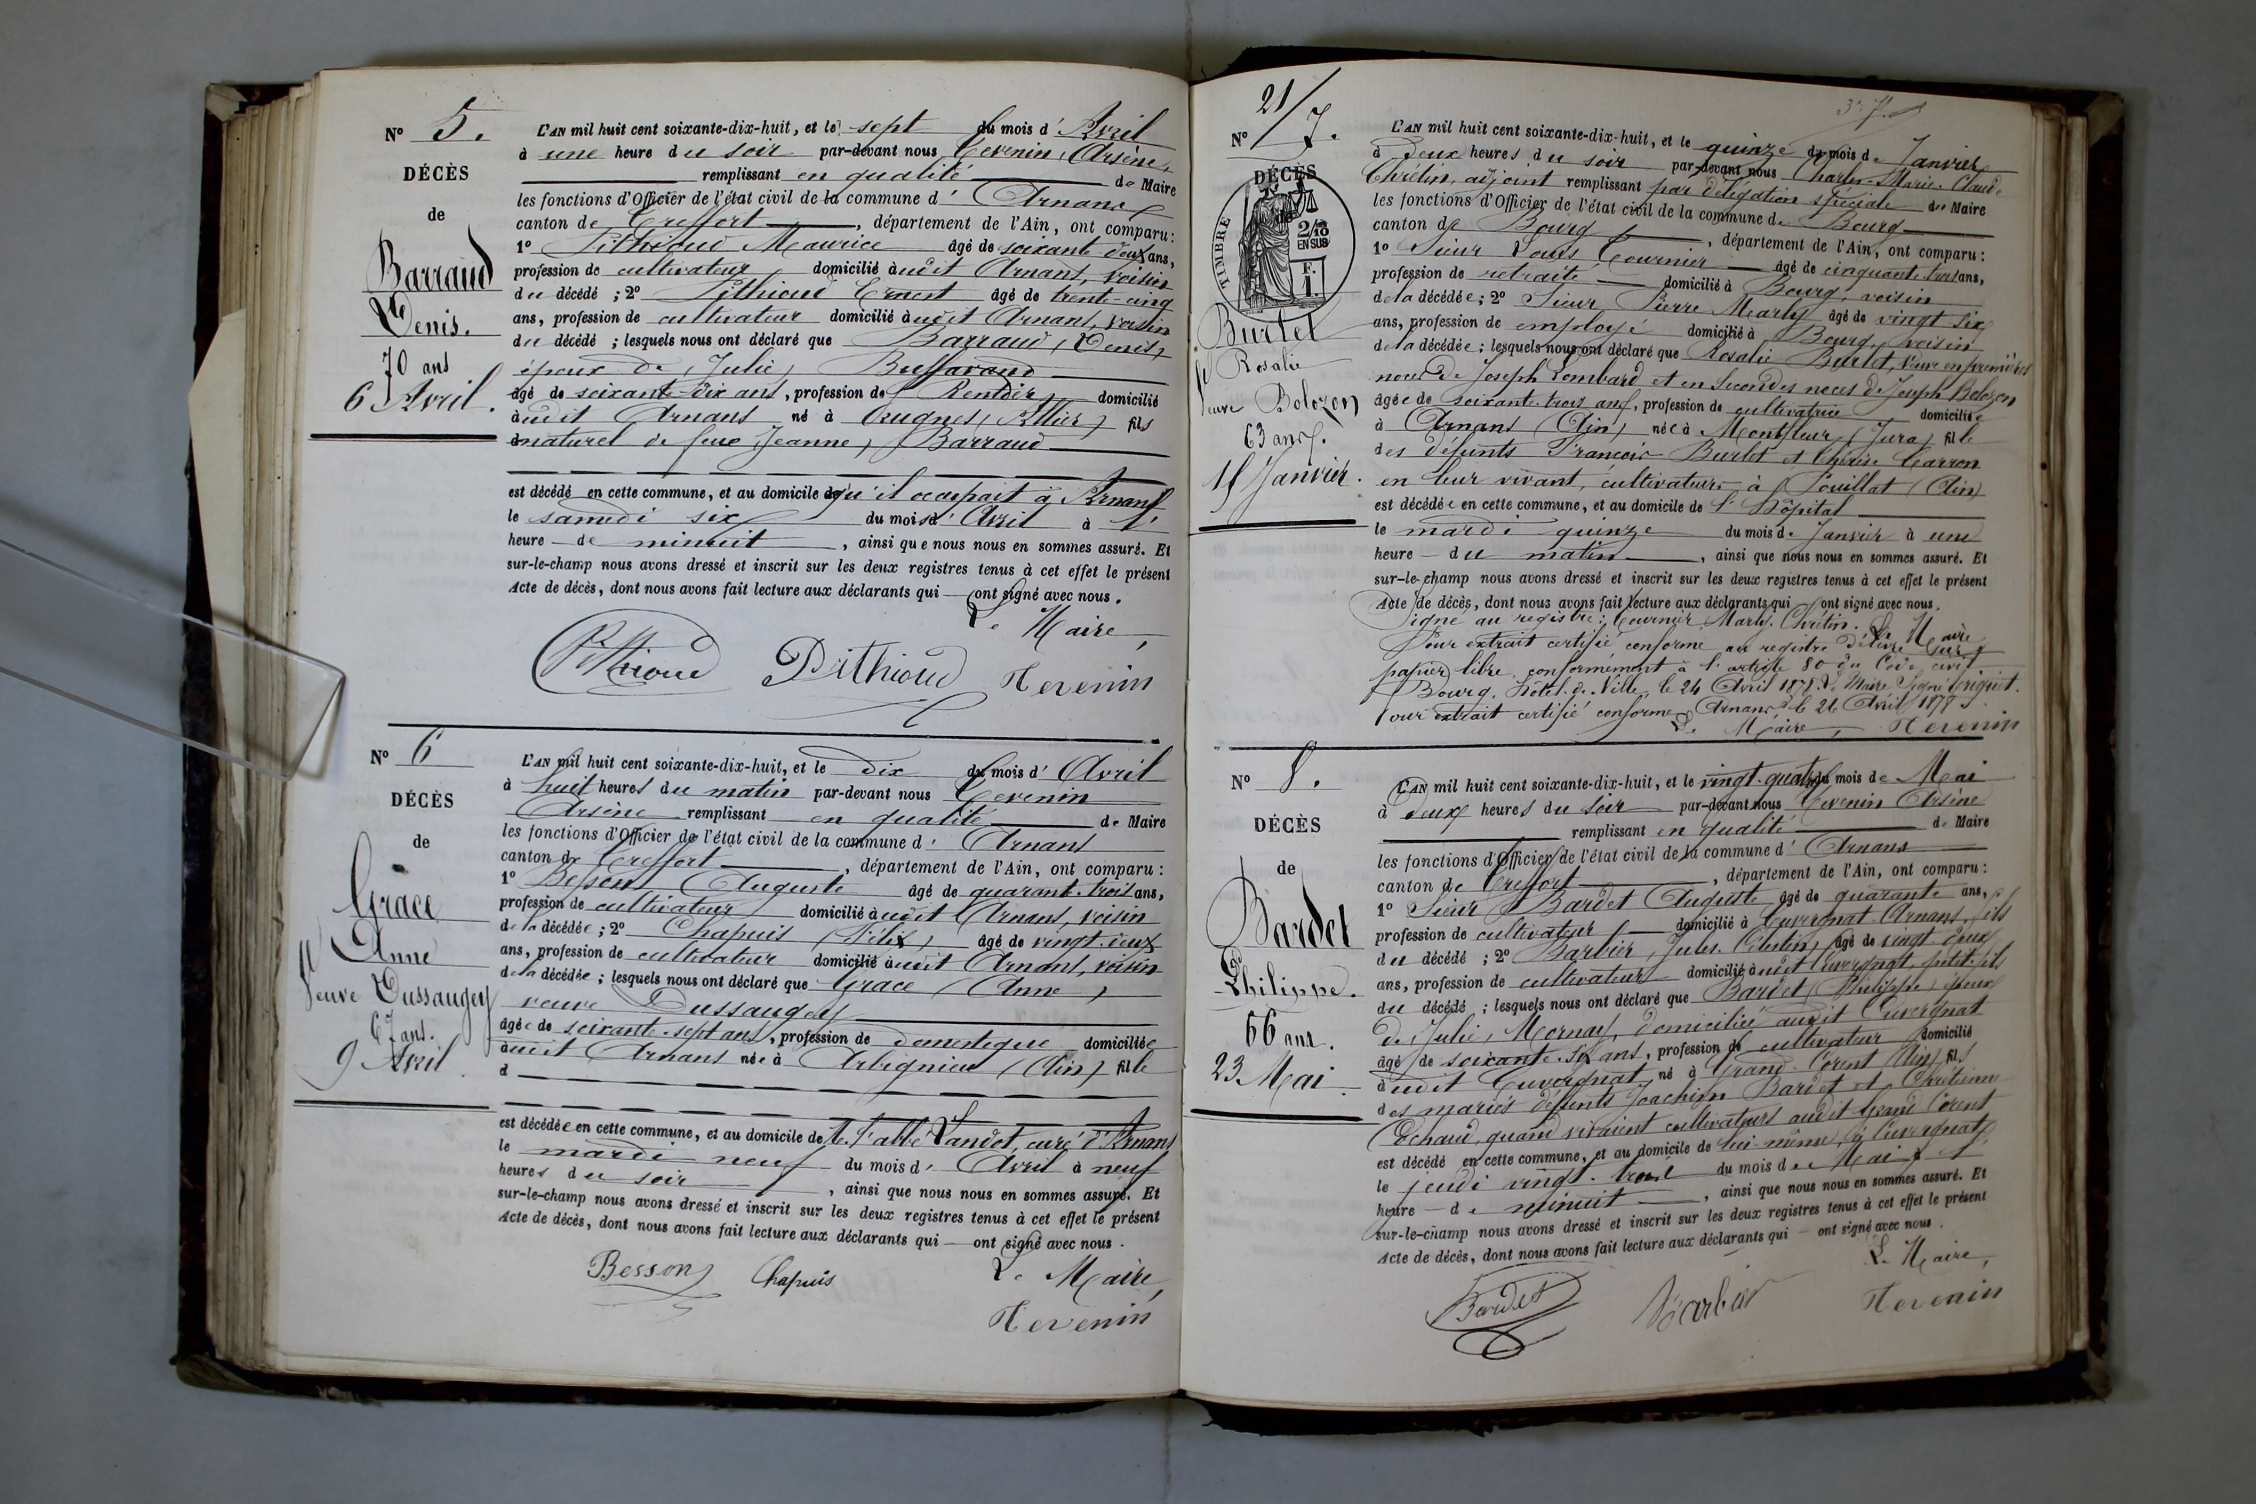 N° 5.
DÉCÈS
de
Barraud
Denis.
70 ans
6 Avril.
L'AN mil huit cent soixante-dix-huit, et le sept du mois d' Avril
à une heure du soir par-devant nous Tevenin, Arsène,
remplissant en qualité de Maire
les fonctions d'Officier de l'état civil de la commune d' Arnans
canton de Treffort, département de l'Ain, ont comparu:
1° Pithioud Maurice âgé de soixante deux ans,
profession de cultivateur domicilié audit Arnans, voisin
du décédé; 2° Pithioud Ernest âgé de trente-cinq
ans, profession de cultivateur domicilié audit Arnans, voisin
du décédé; lesquels nous ont déclaré que Barraud, Denis,
époux de Julie,
âgé de soixante-dix ans, profession de Rentier, domicilié
audit Arnans né à (Allier) fils
naturel de feue Jeanne, Barraud
est décédé en cette commune, et au domicile qu'il occupait à Arnans
le samedi six du mois d' Avril à l'
heure de minuit, ainsi que nous nous en sommes assuré. Et
sur-le-champ nous avons dressé et inscrit sur les deux registres tenus à cet effet le présent
Acte de décès, dont nous avons fait lecture aux déclarants qui ont signé avec nous.
Le Maire,
Pithioud Pithioud Tevenin
N° 6
DÉCÈS
de
Grace
Anne
Veuve Dussaugey
67 ans.
9 Avril.
L'AN mil huit cent soixante-dix-huit, et le dix du mois d' Avril
à huit heures du matin par-devant nous Tevenin
Arsène remplissant en qualité de Maire
les fonctions d'Officier de l'état civil de la commune d' Arnans
canton de Treffort, département de l'Ain, ont comparu:
1° Besson Auguste âgé de quarante-trois ans,
profession de cultivateur domicilié audit Arnans, voisin
de la décédée; 2° Chapuis (Félix) âgé de vingt-deux
ans, profession de cultivateur domicilié audit Arnans, voisin
de la décédée; lesquels nous ont déclaré que Grace (Anne)
veuve Dussaugey
âgée de soixante-sept ans, profession de domestique domiciliée
audit Arnans née à Arbignieu (Ain) fille
d
est décédée en cette commune, et au domicile de Mr. l'abbé Landet, curé d'Arnans
le mardi neuf du mois d' Avril à neuf
heures du soir, ainsi que nous nous en sommes assuré. Et
sur-le-champ nous avons dressé et inscrit sur les deux registres tenus à cet effet le présent
Acte de décès, dont nous avons fait lecture aux déclarants qui ont signé avec nous.
Besson Chapuis Le Maire,
Tevenin
21/
N° 7.
DÉCÈS
TIMBRE
2/10
EN SUS
F.
1.
Burtet
Rosalie
Veuve Bolozon
63 ans.
15 Janvier.
L'AN mil huit cent soixante-dix-huit, et le quinze du mois de Janvier
à deux heures du soir par-devant nous Charles-Marie-Claude
Chrétin, adjoint remplissant par délégation spéciale de Maire
les fonctions d'Officier de l'état civil de la commune de Bourg
canton de Bourg, département de l'Ain, ont comparu:
1° Sieur Louis Cournier âgé de cinquante-trois ans,
profession de retraité domicilié à Bourg, voisin
de la décédée; 2° Sieur Pierre Marly âgé de vingt six
ans, profession de employé domicilié à Bourg, voisin
de la décédée; lesquels nous ont déclaré que Rosalie Burtet, veuve en premières
noces de Joseph Lombard et en secondes noces de Joseph Bolozon
âgée de soixante-trois ans, profession de cultivatrice domiciliée
à Arnans (Ain) née à Montfleur (Jura) fille
des défunts François Burtet et Carron
en leur vivant, cultivateurs à Pouillat (Ain)
est décédée en cette commune, et au domicile de l'Hôpital
le mardi quinze du mois de Janvier à une
heure du matin, ainsi que nous nous en sommes assuré. Et
sur-le-champ nous avons dressé et inscrit sur les deux registres tenus à cet effet le présent
Acte de décès, dont nous avons fait lecture aux déclarants qui ont signé avec nous.
Signé au registre: Cournier, Marly, Chrétin.
Pour extrait certifié conforme au registre délivré sur Le Maire
papier libre conformément à l'article 80 du Code civil
Bourg, Hôtel-de-Ville, le 24 Avril 1878. Le Maire Signé
Pour extrait certifié conforme, Arnans le 26 Avril 1878
Le Maire, Tevenin
N° 8.
DÉCÈS
de
Bardet
Philippe.
66 ans.
23 Mai.
L'AN mil huit cent soixante-dix-huit, et le vingt-quatre du mois de Mai
à deux heures du soir par-devant nous Tevenin Arsène
remplissant en qualité de Maire
les fonctions d'Officier de l'état civil de la commune d' Arnans
canton de Treffort, département de l'Ain, ont comparu:
1° Sieur Bardet Auguste âgé de quarante ans,
profession de cultivateur domicilié à Cuvergnat-Arnans, fils
du décédé; 2° Barbier, Jules-Célestin, âgé de vingt deux
ans, profession de cultivateur domicilié audit Cuvergnat, petit-fils
du décédé; lesquels nous ont déclaré que Bardet (Philippe) époux
de Julie, Mornay, domiciliée audit Cuvergnat
âgé de soixante-six ans, profession de cultivateur domicilié
audit Cuvergnat né à Grand-Corent (Ain) fils
des mariés défunts Joachim Bardet et Christine
Echaud, quand vivaient cultivateurs audit Grand Corent
est décédé en cette commune, et au domicile de lui-même, à Cuvergnat,
le jeudi vingt-trois du mois de Mai à l'
heure de minuit, ainsi que nous nous en sommes assuré. Et
sur-le-champ nous avons dressé et inscrit sur les deux registres tenus à cet effet le présent
Acte de décès, dont nous avons fait lecture aux déclarants qui ont signé avec nous.
Le Maire,
Bardet Barbier Tevenin